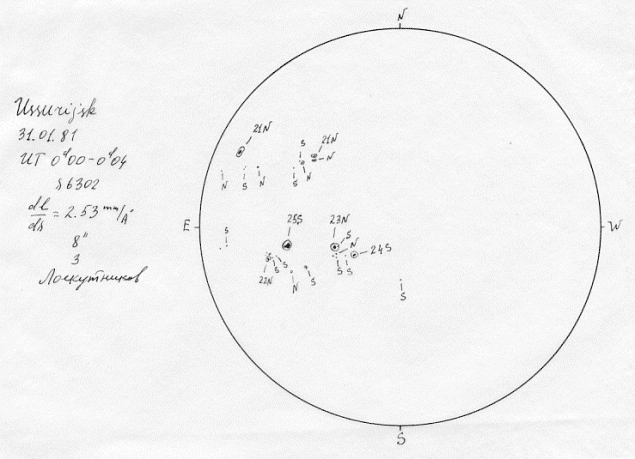 N
Ussurijsk
31.01.81
UT 0ᵈ00-0ᵈ04
λ6302
dl/dλ = 2.53 mm/Å
8"
3
Лоскутников
21N
S
21N
N
N
S
N
S
N
E
W
S
25S
23N
S
N
24S
S
S
S
S
22N
N
S
S
S